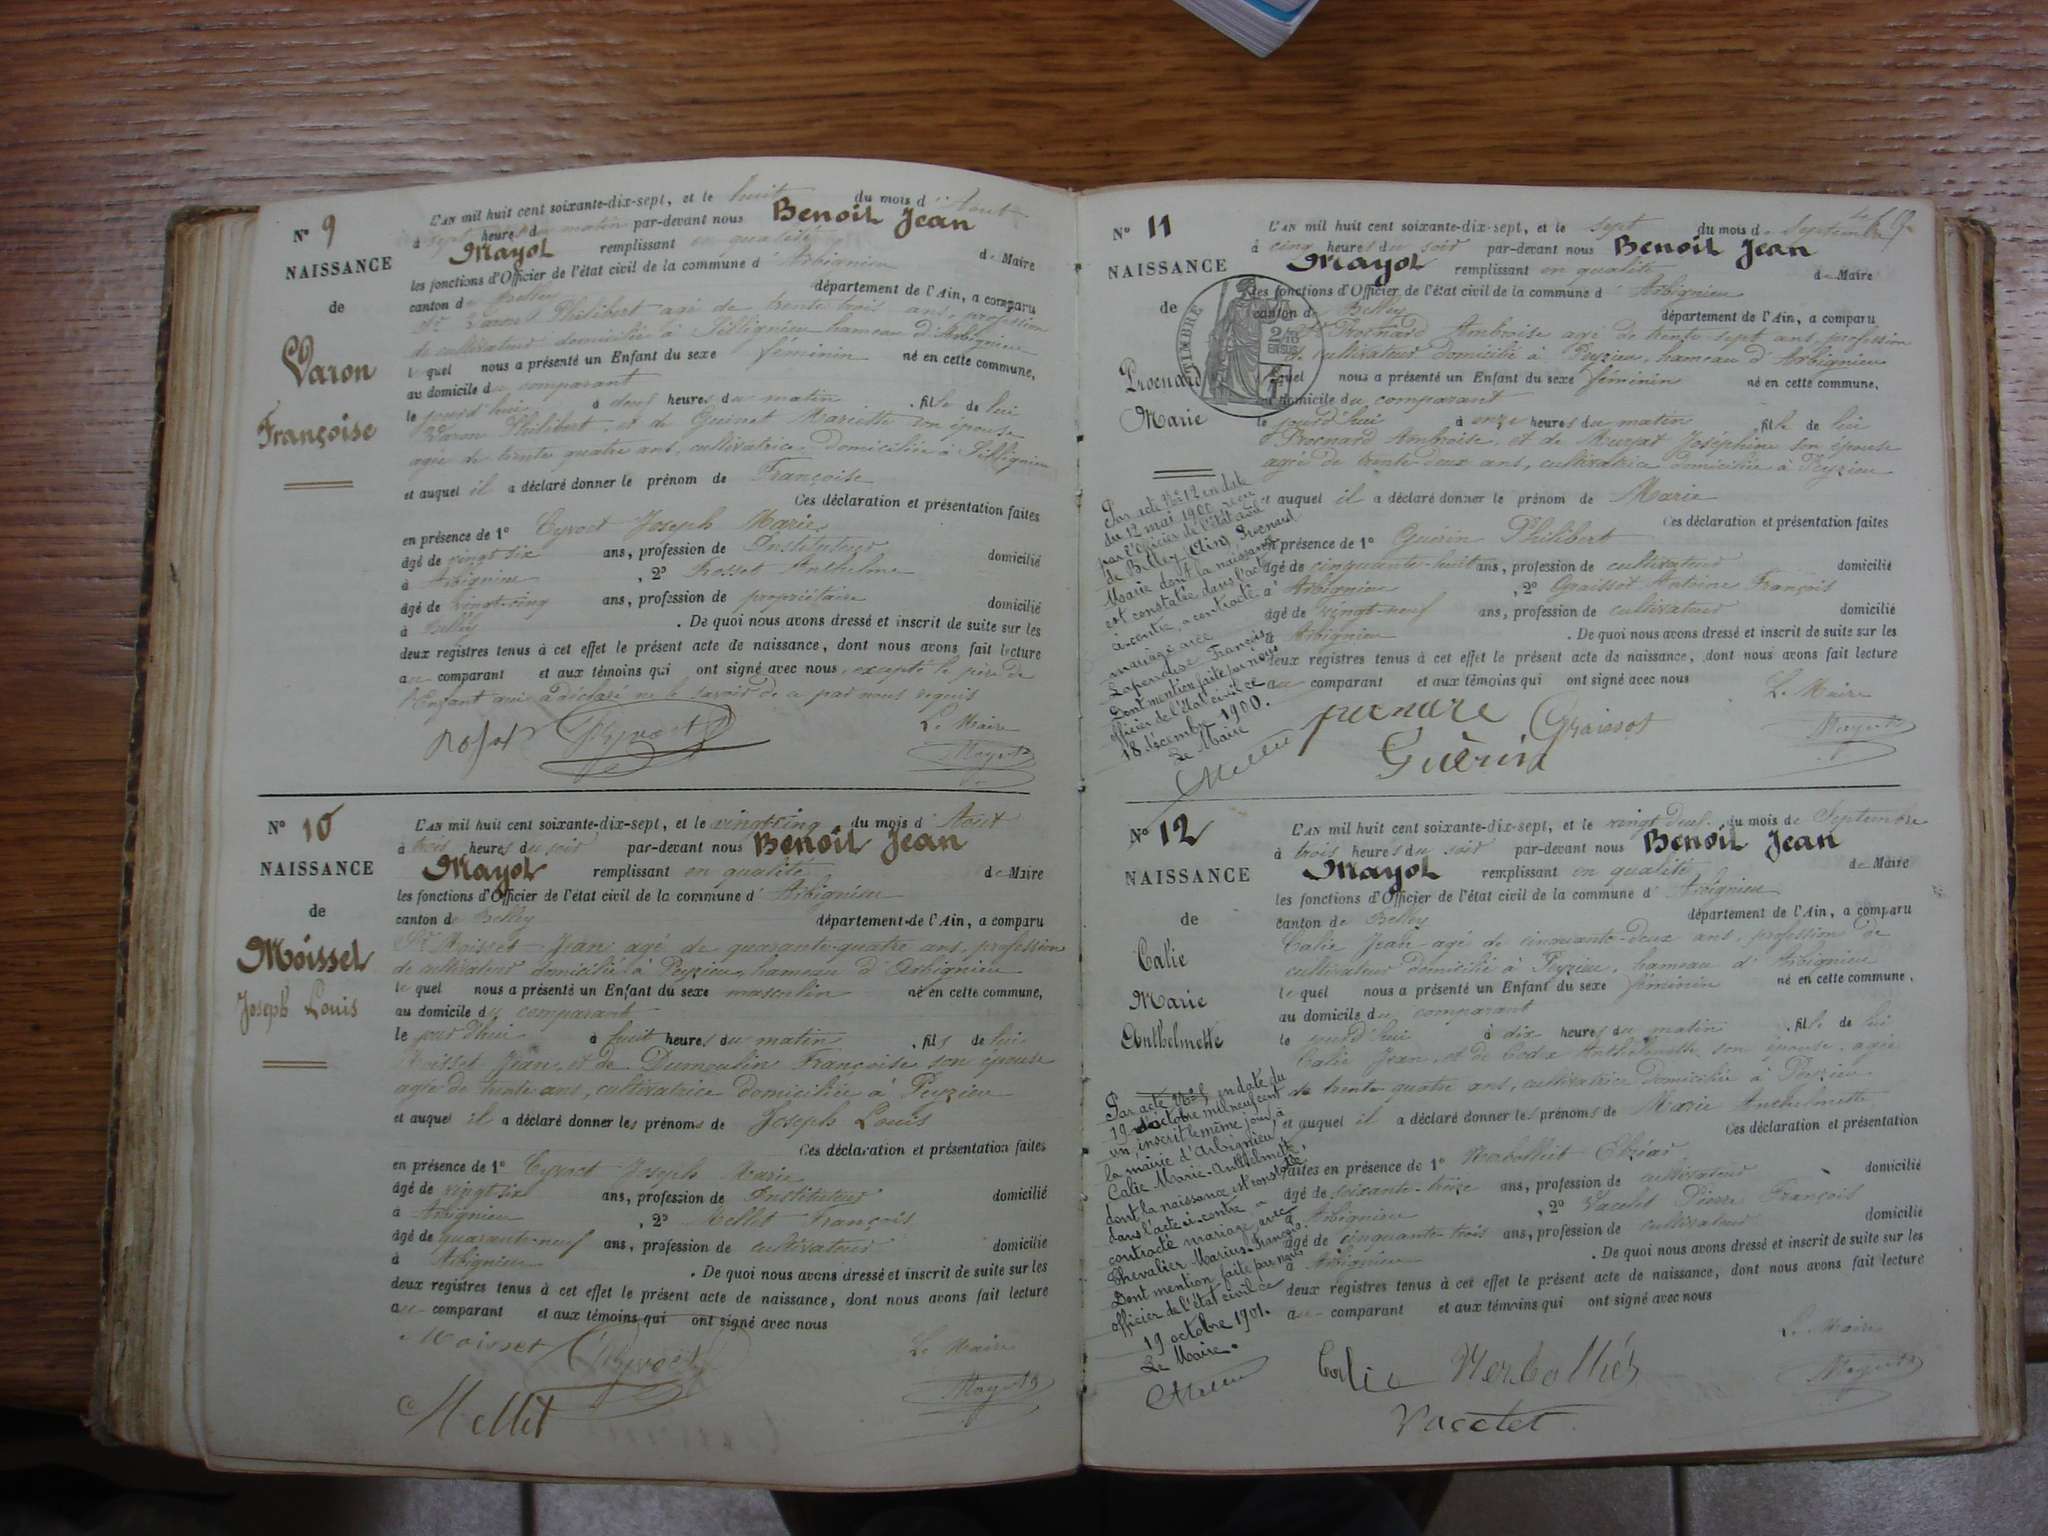 N° 9
NAISSANCE
de
Varon
Françoise
L'AN mil huit cent soixante-dix-sept, et le huit du mois d'Aout
à sept heures du matin par-devant nous Benoit Jean
Mayot remplissant en qualité de Maire
les fonctions d'Officier de l'état civil de la commune d'Arbignieu
canton de Belley département de l'Ain, a comparu
Sr Varon Philibert agé de trente trois ans, profession
de cultivateur domicilié à Sillignieu hameau d'Arbignieu
lequel nous a présenté un Enfant du sexe féminin né en cette commune,
au domicile du comparant
le jourd'hui à deux heures du matin, fille de lui
Varon Philibert, et de Guinet Mariette son épouse
agée de trente quatre ans, cultivatrice, domiciliée à Sillignieu
et auquel il a déclaré donner le prénom de Françoise
Ces déclaration et présentation faites
en présence de 1° Cyvoct Joseph Marie
âgé de vingt six ans, profession de Instituteur domicilié
à Arbignieu, 2° Rosset Anthelme
âgé de vingt-cinq ans, profession de propriétaire domicilié
à Belley. De quoi nous avons dressé et inscrit de suite sur les
deux registres tenus à cet effet le présent acte de naissance, dont nous avons fait lecture
au comparant et aux témoins qui ont signé avec nous, excepté le père de
l'Enfant qui a déclaré ne le savoir de ce par nous requis
Le Maire
Cyvoct
Mayot
N° 10
NAISSANCE
de
Moisset
Joseph Louis
L'AN mil huit cent soixante-dix-sept, et le vingt-cinq du mois d'Août
à trois heures du soir par-devant nous Benoit Jean
Mayot remplissant en qualité de Maire
les fonctions d'Officier de l'état civil de la commune d'Arbignieu
canton de Belley département de l'Ain, a comparu
Sr Moisset Jean, agé de quarante-quatre ans, profession
de cultivateur domicilié à Peyzieu, hameau d'Arbignieu
lequel nous a présenté un Enfant du sexe masculin né en cette commune,
au domicile du comparant
le jourd'hui à huit heures du matin, fils de lui
Moisset Jean, et de Dumoulin Françoise son épouse
agée de trente ans, cultivatrice domiciliée à Peyzieu
et auquel il a déclaré donner les prénoms de Joseph Louis
Ces déclaration et présentation faites
en présence de 1° Cyvoct Joseph Marie
âgé de vingt six ans, profession de Instituteur domicilié
à Arbignieu, 2° Mellet François
âgé de quarante-neuf ans, profession de cultivateur domicilié
à Arbignieu. De quoi nous avons dressé et inscrit de suite sur les
deux registres tenus à cet effet le présent acte de naissance, dont nous avons fait lecture
au comparant et aux témoins qui ont signé avec nous
Moisset Cyvoct Le Maire
Mellet Mayot
N° 11
NAISSANCE
de
Proenard
Marie
TIMBRE
L'AN mil huit cent soixante-dix-sept, et le sept du mois de Septembre
à cinq heures du soir par-devant nous Benoit Jean
Mayot remplissant en qualité de Maire
les fonctions d'Officier de l'état civil de la commune d'Arbignieu
canton de Belley département de l'Ain, a comparu
Sr Proenard Ambroise agé de trente sept ans, profession
de cultivateur domicilié à Peyzieu, hameau d'Arbignieu
lequel nous a présenté un Enfant du sexe féminin né en cette commune,
au domicile du comparant
le jourd'hui à onze heures du matin fille de lui
Proenard Ambroise, et de Murzat Joséphine son épouse
agée de trente-deux ans, cultivatrice domiciliée à Peyzieu
et auquel il a déclaré donner le prénom de Marie
Ces déclaration et présentation faites
en présence de 1° Guérin Philibert
âgé de cinquante-huit ans, profession de cultivateur domicilié
à Arbignieu, 2° Graissot Antoine François
âgé de vingt-neuf ans, profession de cultivateur domicilié
à Arbignieu. De quoi nous avons dressé et inscrit de suite sur les
deux registres tenus à cet effet le présent acte de naissance, dont nous avons fait lecture
au comparant et aux témoins qui ont signé avec nous
Le Maire
Graissot
Guérin
Mayot
Par acte N° 12 en date
du 12 mai 1900 reçu
par l'officier de l'état civil
de Belley (Ain) Proenard
Marie dont la naissance
est constatée dans l'acte
ci-contre, a contracté
mariage avec
Laperrouse François
Dont mention faite par nous
officier de l'état civil ce
18 décembre 1900.
Le Maire
Mellet
N° 12
NAISSANCE
de
Calie
Marie
Anthelmette
L'AN mil huit cent soixante-dix-sept, et le vingt deux du mois de Septembre
à trois heures du soir par-devant nous Benoit Jean
Mayot remplissant en qualité de Maire
les fonctions d'Officier de l'état civil de la commune d'Arbignieu
canton de Belley département de l'Ain, a comparu
Calie Jean agé de cinquante-deux ans, profession de
cultivateur domicilié à Peyzieu, hameau d'Arbignieu
lequel nous a présenté un Enfant du sexe féminin né en cette commune,
au domicile du comparant
le jourd'hui à dix heures du matin, fille de lui
Calie Jean, et de Anthelmette son épouse, agée
de trente quatre ans, cultivatrice domiciliée à Peyzieu
et auquel il a déclaré donner les prénoms de Marie Anthelmette
Ces déclaration et présentation
faites en présence de 1°
âgé de soixante-treize ans, profession de cultivateur domicilié
à Arbignieu, 2° Vacelet Pierre François
âgé de cinquante-trois ans, profession de cultivateur domicilié
à Arbignieu. De quoi nous avons dressé et inscrit de suite sur les
deux registres tenus à cet effet le présent acte de naissance, dont nous avons fait lecture
au comparant et aux témoins qui ont signé avec nous
Le Maire
Calie
Vacelet
Mayot
Par acte N° 5 en date du
19 octobre mil neuf cent
un, inscrit le même jour à
la mairie d'Arbignieu,
Calie Marie-Anthelmette,
dont la naissance est constatée
dans l'acte ci-contre a
contracté mariage avec
Chevalier Marius-François.
Dont mention faite par nous
officier de l'état civil ce
19 octobre 1901.
Le Maire.
Mellet